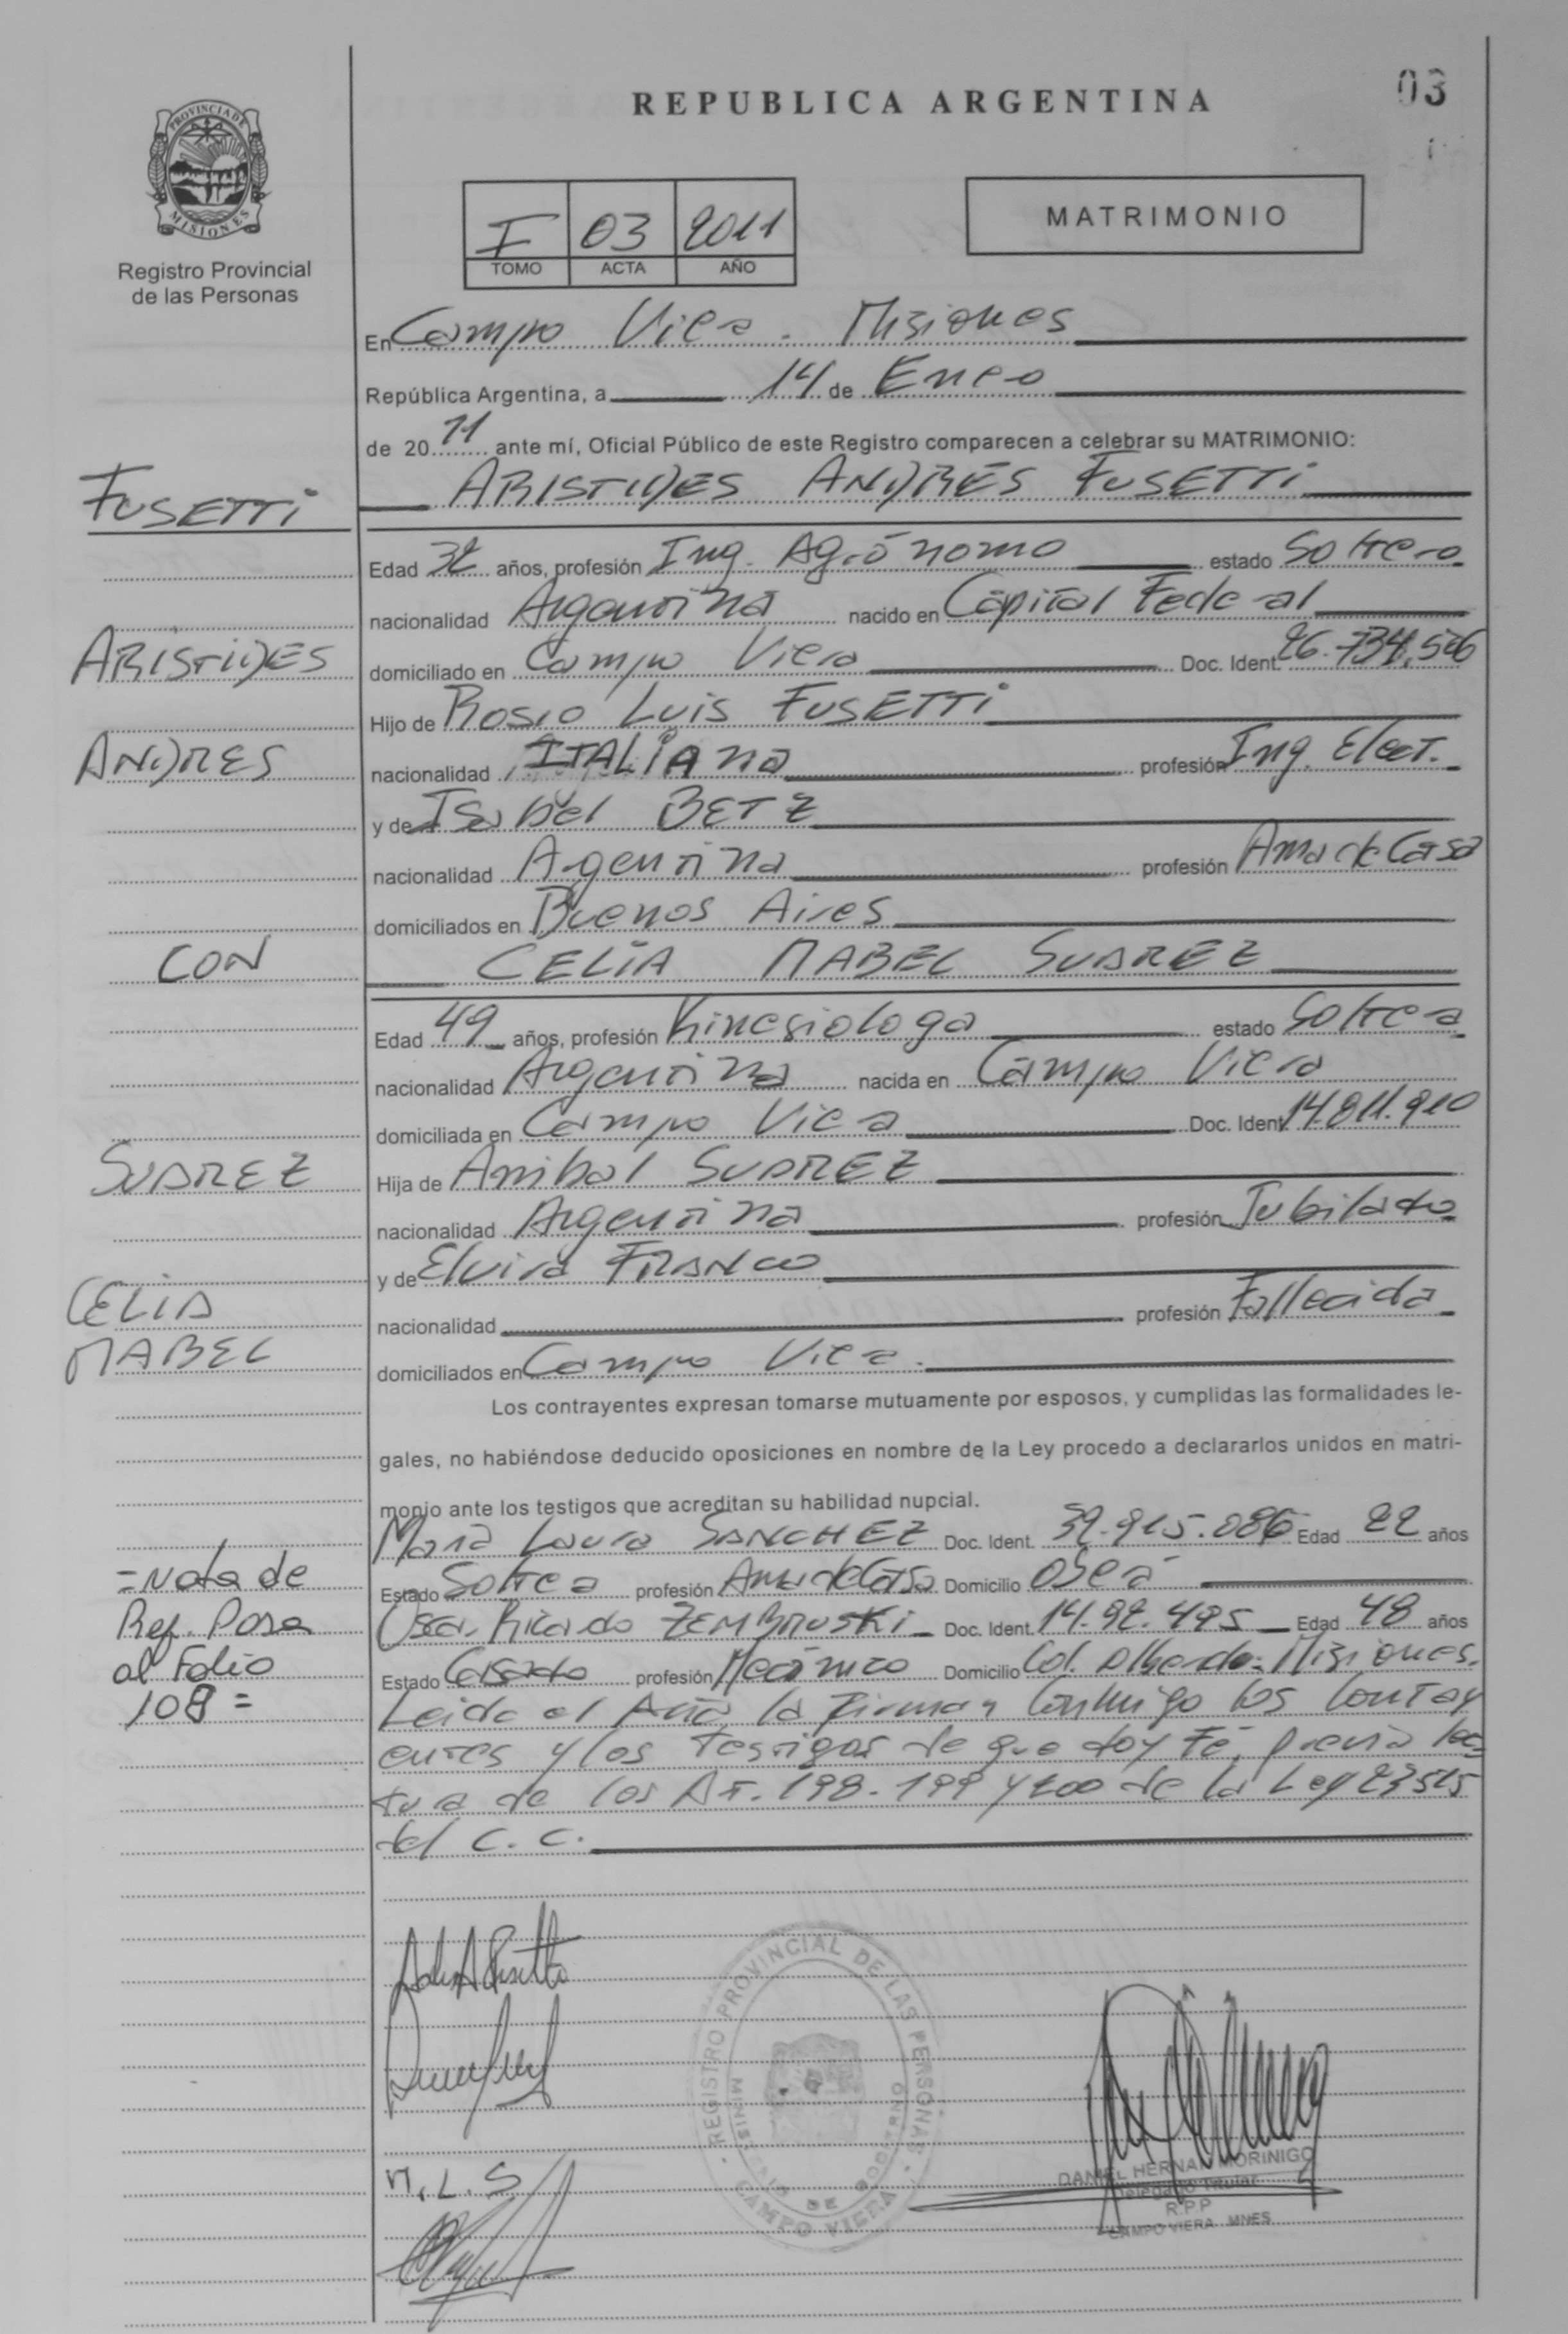 REPUBLICA ARGENTINA
03
PROVINCIA DE
MISIONES
Registro Provincial
de las Personas
I 03 2011
TOMO ACTA AÑO
MATRIMONIO
En Campo Viera. Misiones
República Argentina, a 14 de Enero
de 20 11 ante mí, Oficial Público de este Registro comparecen a celebrar su MATRIMONIO:
FUSETTI
ARISTIDES ANDRÉS FUSETTI
Edad 32 años, profesión Ing. Agrónomo estado Soltero
nacionalidad Argentina nacido en Capital Federal
ARISTIDES
domiciliado en Campo Viera Doc. Ident. 26.734.506
Hijo de Rosio Luis FUSETTI
ANDRES
nacionalidad ITALIAna profesión Ing. Elect.
y de Isabel BETZ
nacionalidad Argentina profesión Ama de Casa
domiciliados en Buenos Aires
CON
CELIA MABEL SUAREZ
Edad 49 años, profesión Kinesiologa estado Soltera
nacionalidad Argentina nacida en Campo Viera
domiciliada en Campo Viera Doc. Ident. 14.811.910
SUAREZ
Hija de Anibal SUAREZ
nacionalidad Argentina profesión Jubilado
y de Elvira FRANCO
CELIA
nacionalidad profesión Fallecida
MABEL
domiciliados en Campo Viera.
Los contrayentes expresan tomarse mutuamente por esposos, y cumplidas las formalidades le-
gales, no habiéndose deducido oposiciones en nombre de la Ley procedo a declararlos unidos en matri-
monio ante los testigos que acreditan su habilidad nupcial.
Maria Laura SANCHEZ Doc. Ident. 39.915.086 Edad 22 años
=Nota de
Estado Soltera profesión Ama de Casa Domicilio Oberá
Ref. Pasa
Oscar Ricardo ZEMBRUSKI Doc. Ident. 14.92.495 Edad 48 años
al Folio
Estado Casado profesión Mecánico Domicilio Col. Alberdi. Misiones.
108=
Leida el Acta, la firman Conmigo los Contray
entes y los testigos de que doy Fé, previa lec=
tura de los Art. 198. 199 y 200 de la Ley 23515
del C. C.
REGISTRO PROVINCIAL DE LAS PERSONAS
MINISTERIO DE GOBIERNO
CAMPO VIERA
M.L.S
DANIEL HERNAN MORINIGO
Delegado Titular
R.P.P
CAMPO VIERA MNES